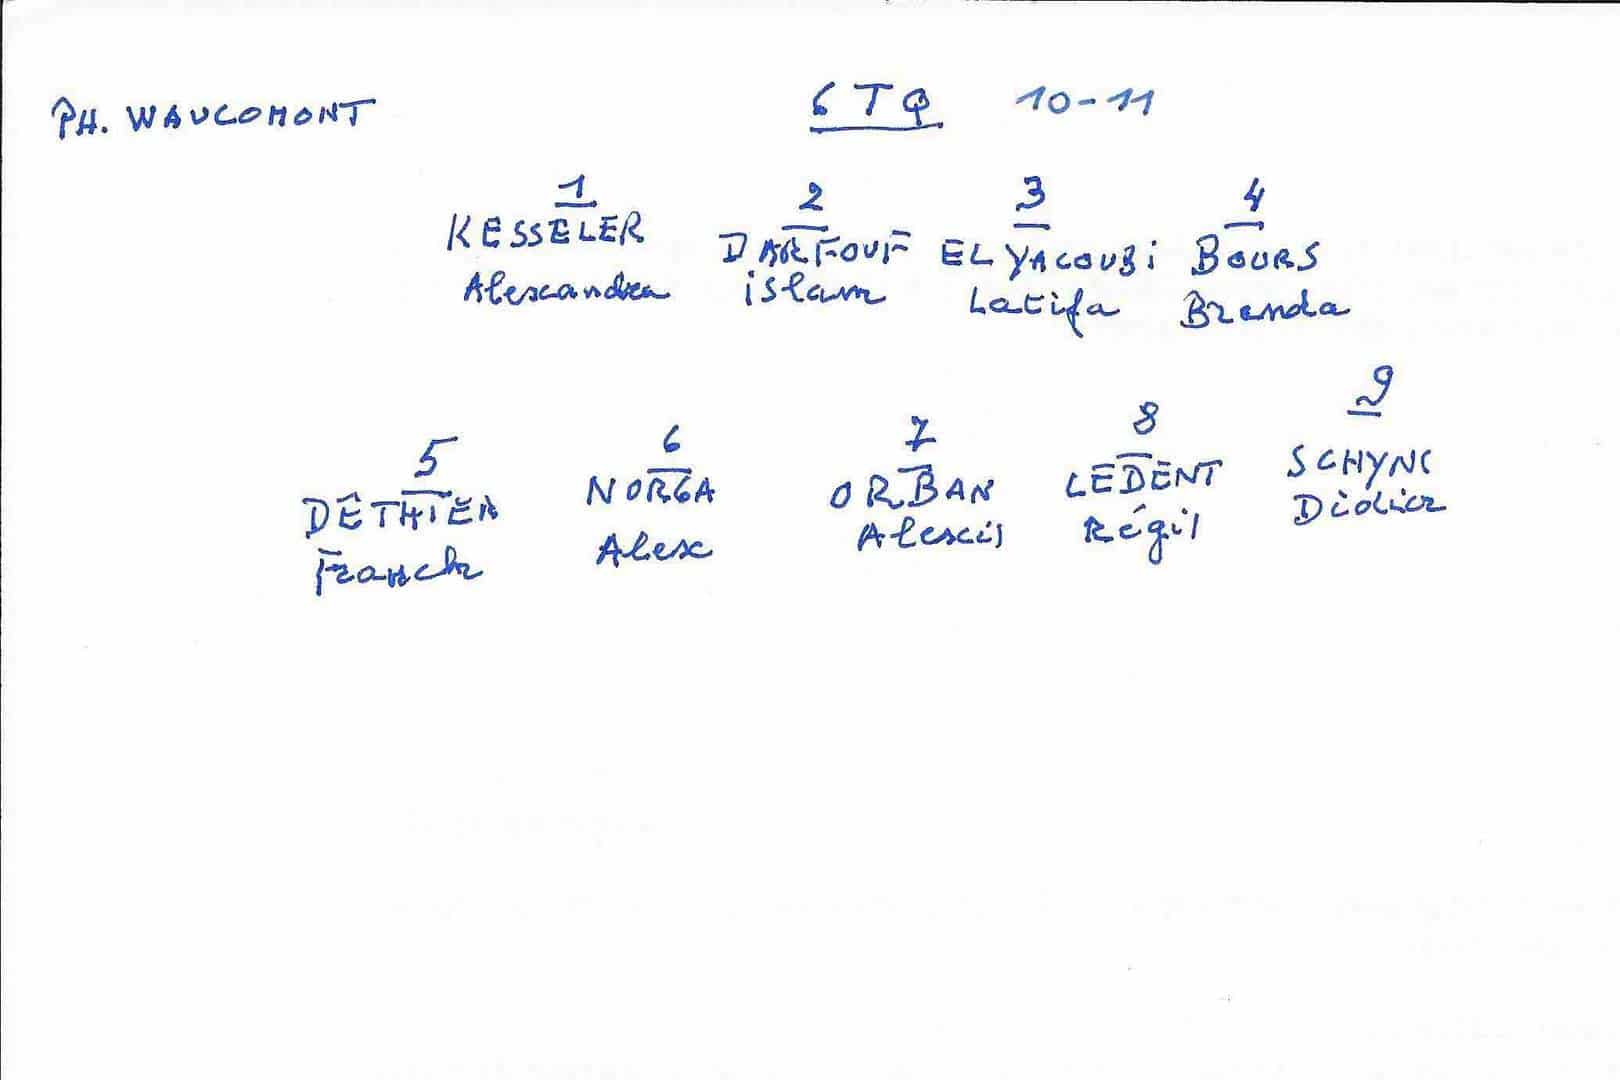 PH. WAUCOMONT
6TQ 10-11
1 2 3 4
KESSELER DARFOUF EL YACOUBi BOURS
Alexandra iSlam Latifa Brenda
5 6 7 8 9
DETHIER NORGA ORBAN LEDENT SCHYNC
Franck Alex Alexis Régil Didier